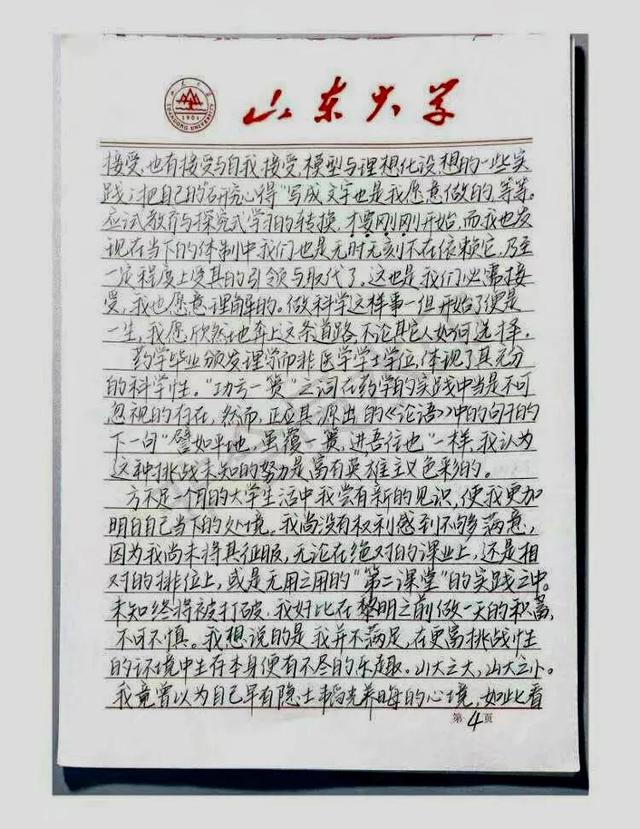 山东大学
SHANDONG UNIVERSITY
1901
接受,也有接受与自我接受,模型与理想化设想的一些实
践;把自己的"研究心得"写成文字也是我愿意做的,等等。
应试教育与探究式学习的转换,才要刚刚开始,而我也发
现在当下的体制中我们也是无时无刻不在依赖它,乃至
一定程度上受其的引领与取代了。这也是我们必需接
受,我也愿意理解的。做科学这样事一但开始了便是
一生,我愿欣然地奔上这条道路,不论其它人如何选择。
药学毕业颁发理学而非医学学士学位,体现了其充分
的科学性。"功亏一篑"之词在药学的实践中当是不可
忽视的存在,然而,正应其源出的《论语》中的句子的
下一句"譬如平地,虽覆一篑,进吾往也"一样,我认为
这种挑战未知的努力是富有英雄主义色彩的。
方不足一个月的大学生活中我尝有新的见识,使我更加
明白自己当下的处境。我尚没有权利感到不够满意,
因为我尚未将其征服,无论在绝对的课业上,还是相
对的排位上,或是无用之用的"第二课堂"的实践之中。
未知终将被打破,我好比在黎明之前做一天的积蓄,
不可不慎。我想说的是我并不满足,在更富挑战性
的环境中生存本身便有不尽的乐趣。山大之大,山大之小。
我竟曾以为自己早有隐士韬光养晦的心境,如此看
第4页